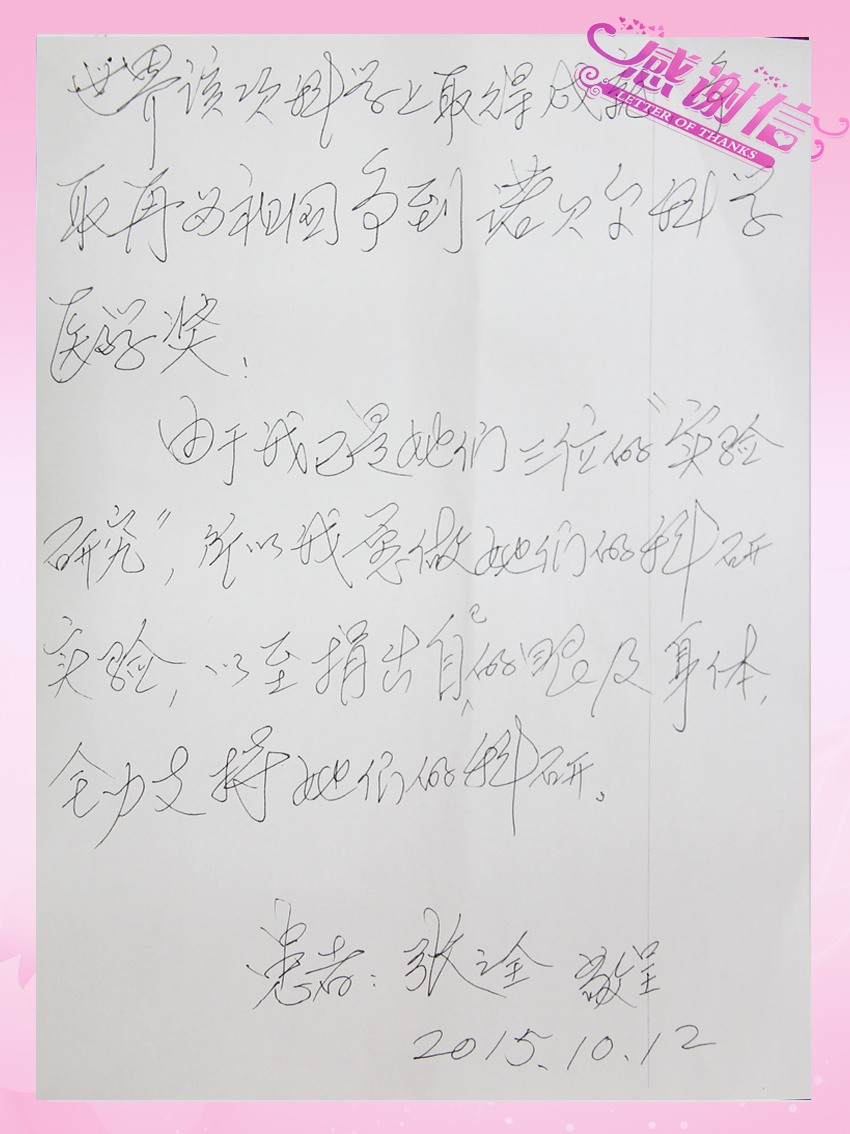 感谢信
LETTER OF THANKS
世界该项科学上取得成就,争
取再为祖国争到诺贝尔科学
医学奖!
由于我已是她们三位的“实验
研究”,所以我愿做她们的科研
实验,以至捐出自己的眼及身体,
全力支持她们的科研。
患者:张全 敬呈
2015.10.12